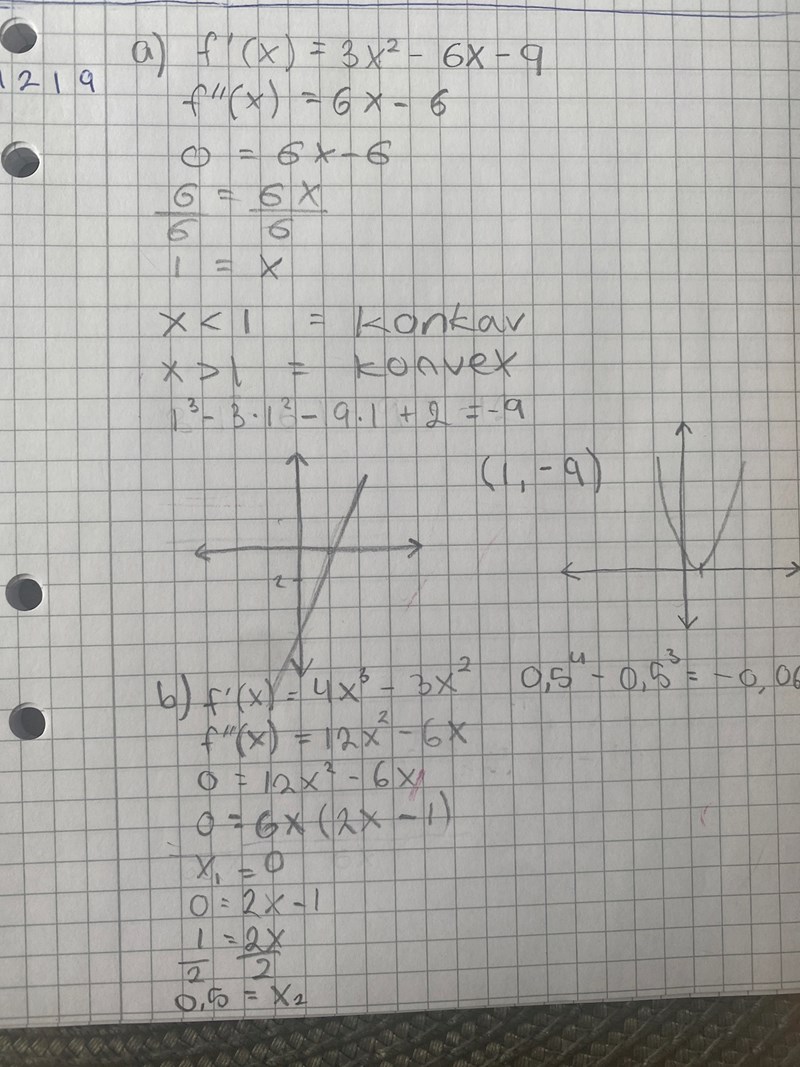 1219
a) f'(x) = 3x² - 6x - 9
f''(x) = 6x - 6
0 = 6x - 6
6/6 = 6x/6
1 = x
x < 1 = konkav
x > 1 = konvex
1³ - 3·1² - 9·1 + 2 = -9
(1, -9)
2
b) f'(x) = 4x³ - 3x²
0,5⁴ - 0,5³ = -0,06
f''(x) = 12x² - 6x
0 = 12x² - 6x
0 = 6x (2x - 1)
x₁ = 0
0 = 2x - 1
1/2 = 2x/2
0,5 = x₂